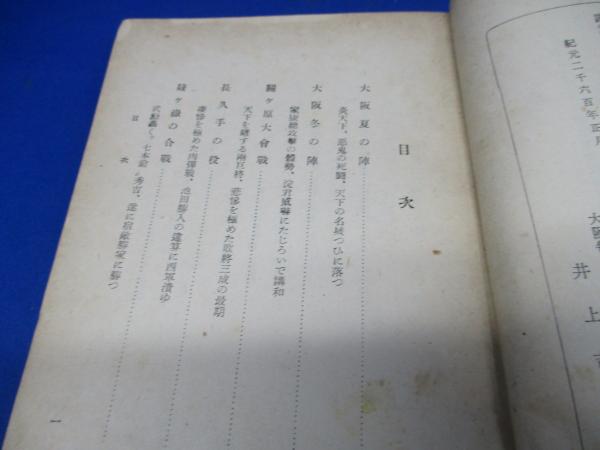 紀元二千六百年正月
大阪
井上
目次
大阪夏の陣
炎天下、悪鬼の死闘、天下の名城つひに落つ
大阪冬の陣
家康總攻撃の態勢、淀君威嚇にたじろいで講和
關ケ原大會戰
天下を賭する兩巨將、悲慘を極めた敗將三成の最期
長久手の役
悽慘を極めた肉彈戰、池田勝入の違算に西軍潰ゆ
賤ケ嶽の合戰
武勳轟く〝七本槍〟秀吉、遂に宿敵勝家に勝つ
目次
一